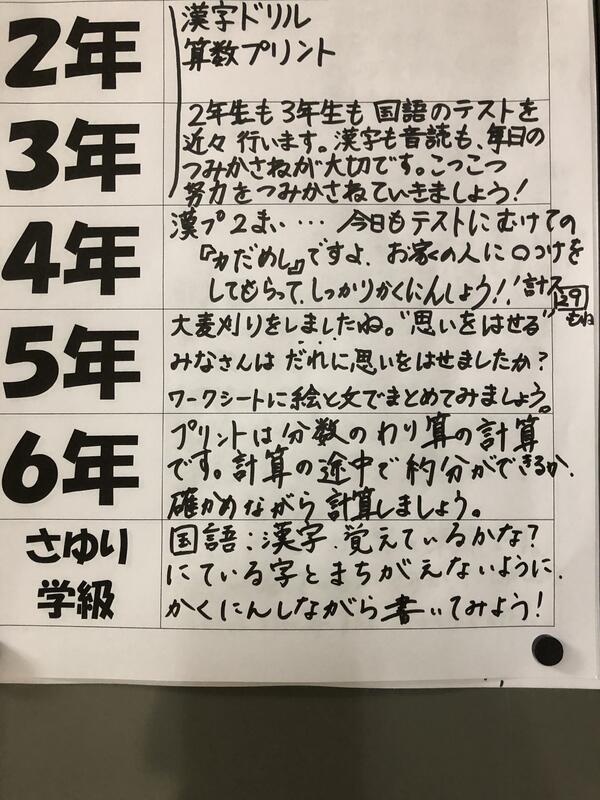 2年
漢字ドリル
算数プリント
3年
2年生も3年生も国語のテストを
近々行います。漢字も音読も、毎日の
つみかさねが大切です。こつこつ
努力をつみかさねていきましょう!
4年
漢プ2まい… 今日もテストにむけての
『力だめし』ですよ。お家の人に○つけを
してもらって、しっかりかくにんしよう!! 計ス
29
もね
5年
大麦刈りをしましたね。"思いをはせる"
みなさんはだれに思いをはせましたか?
ワークシートに絵と文でまとめてみましょう。
6年
プリントは分数のわり算の計算
です。計算の途中で約分ができるか、
確かめながら計算しましょう。
さゆり
学級
国語:漢字、覚えているかな?
にている字とまちがえないように、
かくにんしながら書いてみよう!